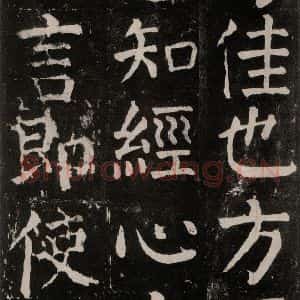 佳也方
知經心
言即使
Shufawang.CN